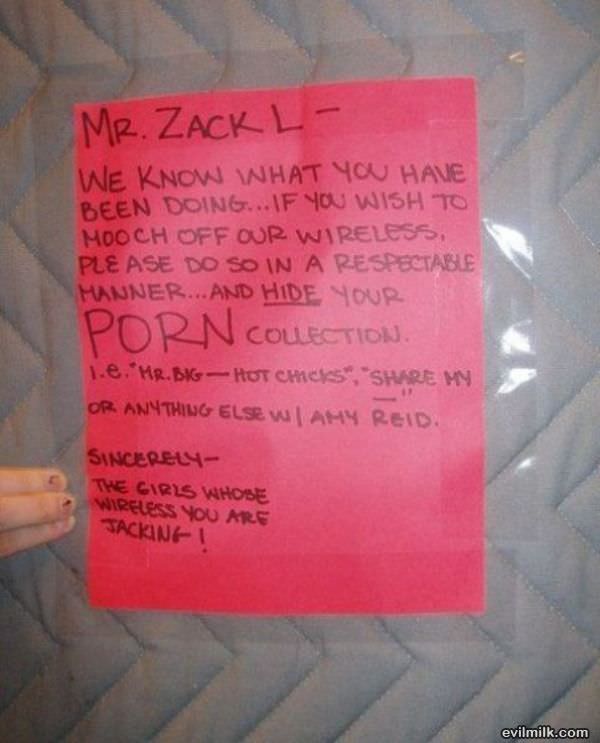 MR. ZACK L-
WE KNOW WHAT YOU HAVE
BEEN DOING...IF YOU WISH TO
MOOCH OFF OUR WIRELESS,
PLEASE DO SO IN A RESPECTABLE
MANNER...AND HIDE YOUR
PORN COLLECTION.
i.e."MR.BIG-HOT CHICKS","SHARE MY
—"
OR ANYTHING ELSE W/ AMY REID.
SINCERELY-
THE GIRLS WHOSE
WIRELESS YOU ARE
JACKING!
evilmilk.com